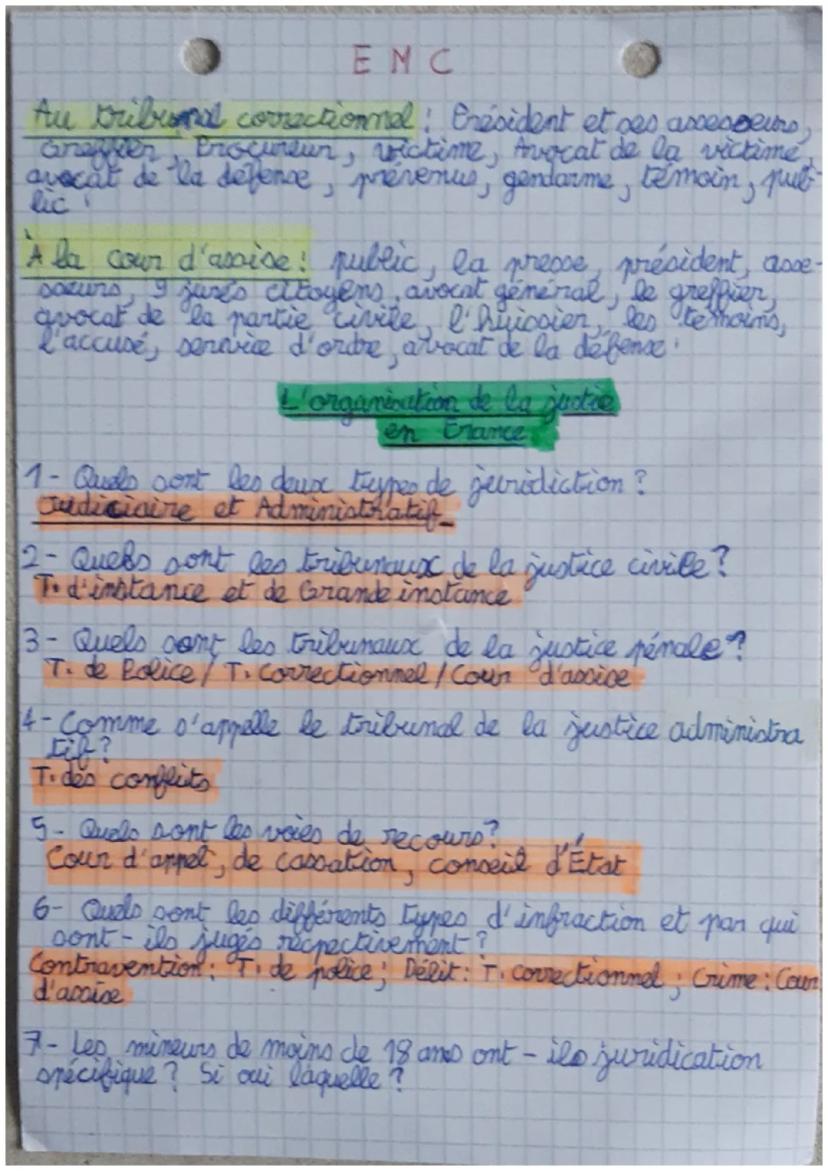 EMC
Au tribunal correctionnel : Président et ses assesseurs,
Greffier, Procureur, victime, Avocat de la victime,
avocat de la défense, prévenus, gendarme, témoin, pub-
lic.
À la cour d'assise : public, la presse, président, asse-
sseurs, 9 jurés citoyens, avocat général, le greffier,
avocat de la partie civile, l'huissier, les témoins,
l'accusé, service d'ordre, avocat de la défense.
L'organisation de la justice
en France
1- Quels sont les deux types de juridiction ?
Judiciaire et Administratif
2- Quels sont les tribunaux de la justice civile ?
T. d'instance et de Grande instance
3- Quels sont les tribunaux de la justice pénale ?
T. de Police / T. Correctionnel / Cour d'assise
4- Comme s'appelle le tribunal de la justice administra
tif ?
T. des conflits
5- Quels sont les voies de recours ?
Cour d'appel, de cassation, conseil d'État
6- Quels sont les différents types d'infraction et par qui
sont-ils jugés respectivement ?
Contravention : T. de police ; Délit : T. correctionnel ; Crime : Cour
d'assise
7- Les mineurs de moins de 18 ans ont-ils juridication
spécifique ? Si oui laquelle ?